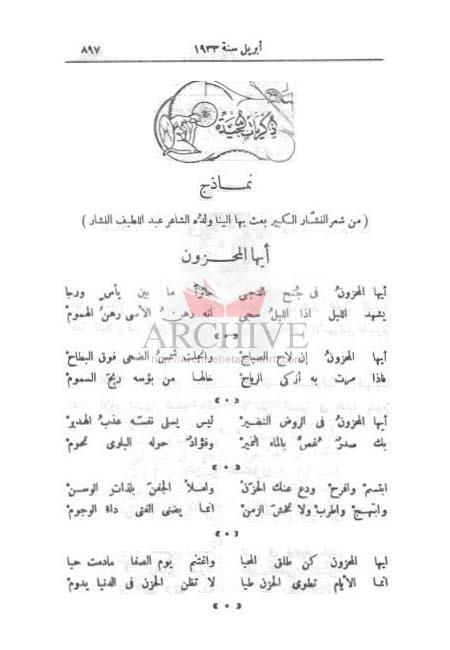 أبريل سنة ١٩٣٣ ٨٩٧
ذكريات مجيدة
نماذج
( من شعر النشّار الكبير بعث بها الينا ولده الشاعر عبد اللطيف النشار )
أيها المحزون
أيها المحزونُ فى جُنح الدجى حائراً ما بين يأسٍ ورجا
يشهد الليل اذا الليلُ سجى انه رهنُ الأسى رهنُ الهمومْ
أيها المحزونُ إن لاح الصباح وانجلت شمسُ الضحى فوق البطاحْ
فاذا مرت به أزكى الرياحْ خالها من بؤسه ريحَ السمومْ
أيها المحزونُ فى الروض النضيرْ ليس يسلى نفسَه عذبُ الهديرْ
بك صدرٌ غُصَّ بالماء النميرْ وفؤادٌ حوله البلوى تحومْ
ابتسمْ وافرحْ ودع عنك الحزَنْ واملأ الجفنَ بلذات الوسنْ
وابتهجْ واطربْ ولا تخشَ الزمنْ انما يضنى الفتى داءُ الوجومْ
ايها المحزون كن طلق المحيا واغتنم يوم الصفا مادمت حيا
انما الأيام تطوى الحزن طيا لا تظن الحزن فى الدنيا يدومْ
ARCHIVE